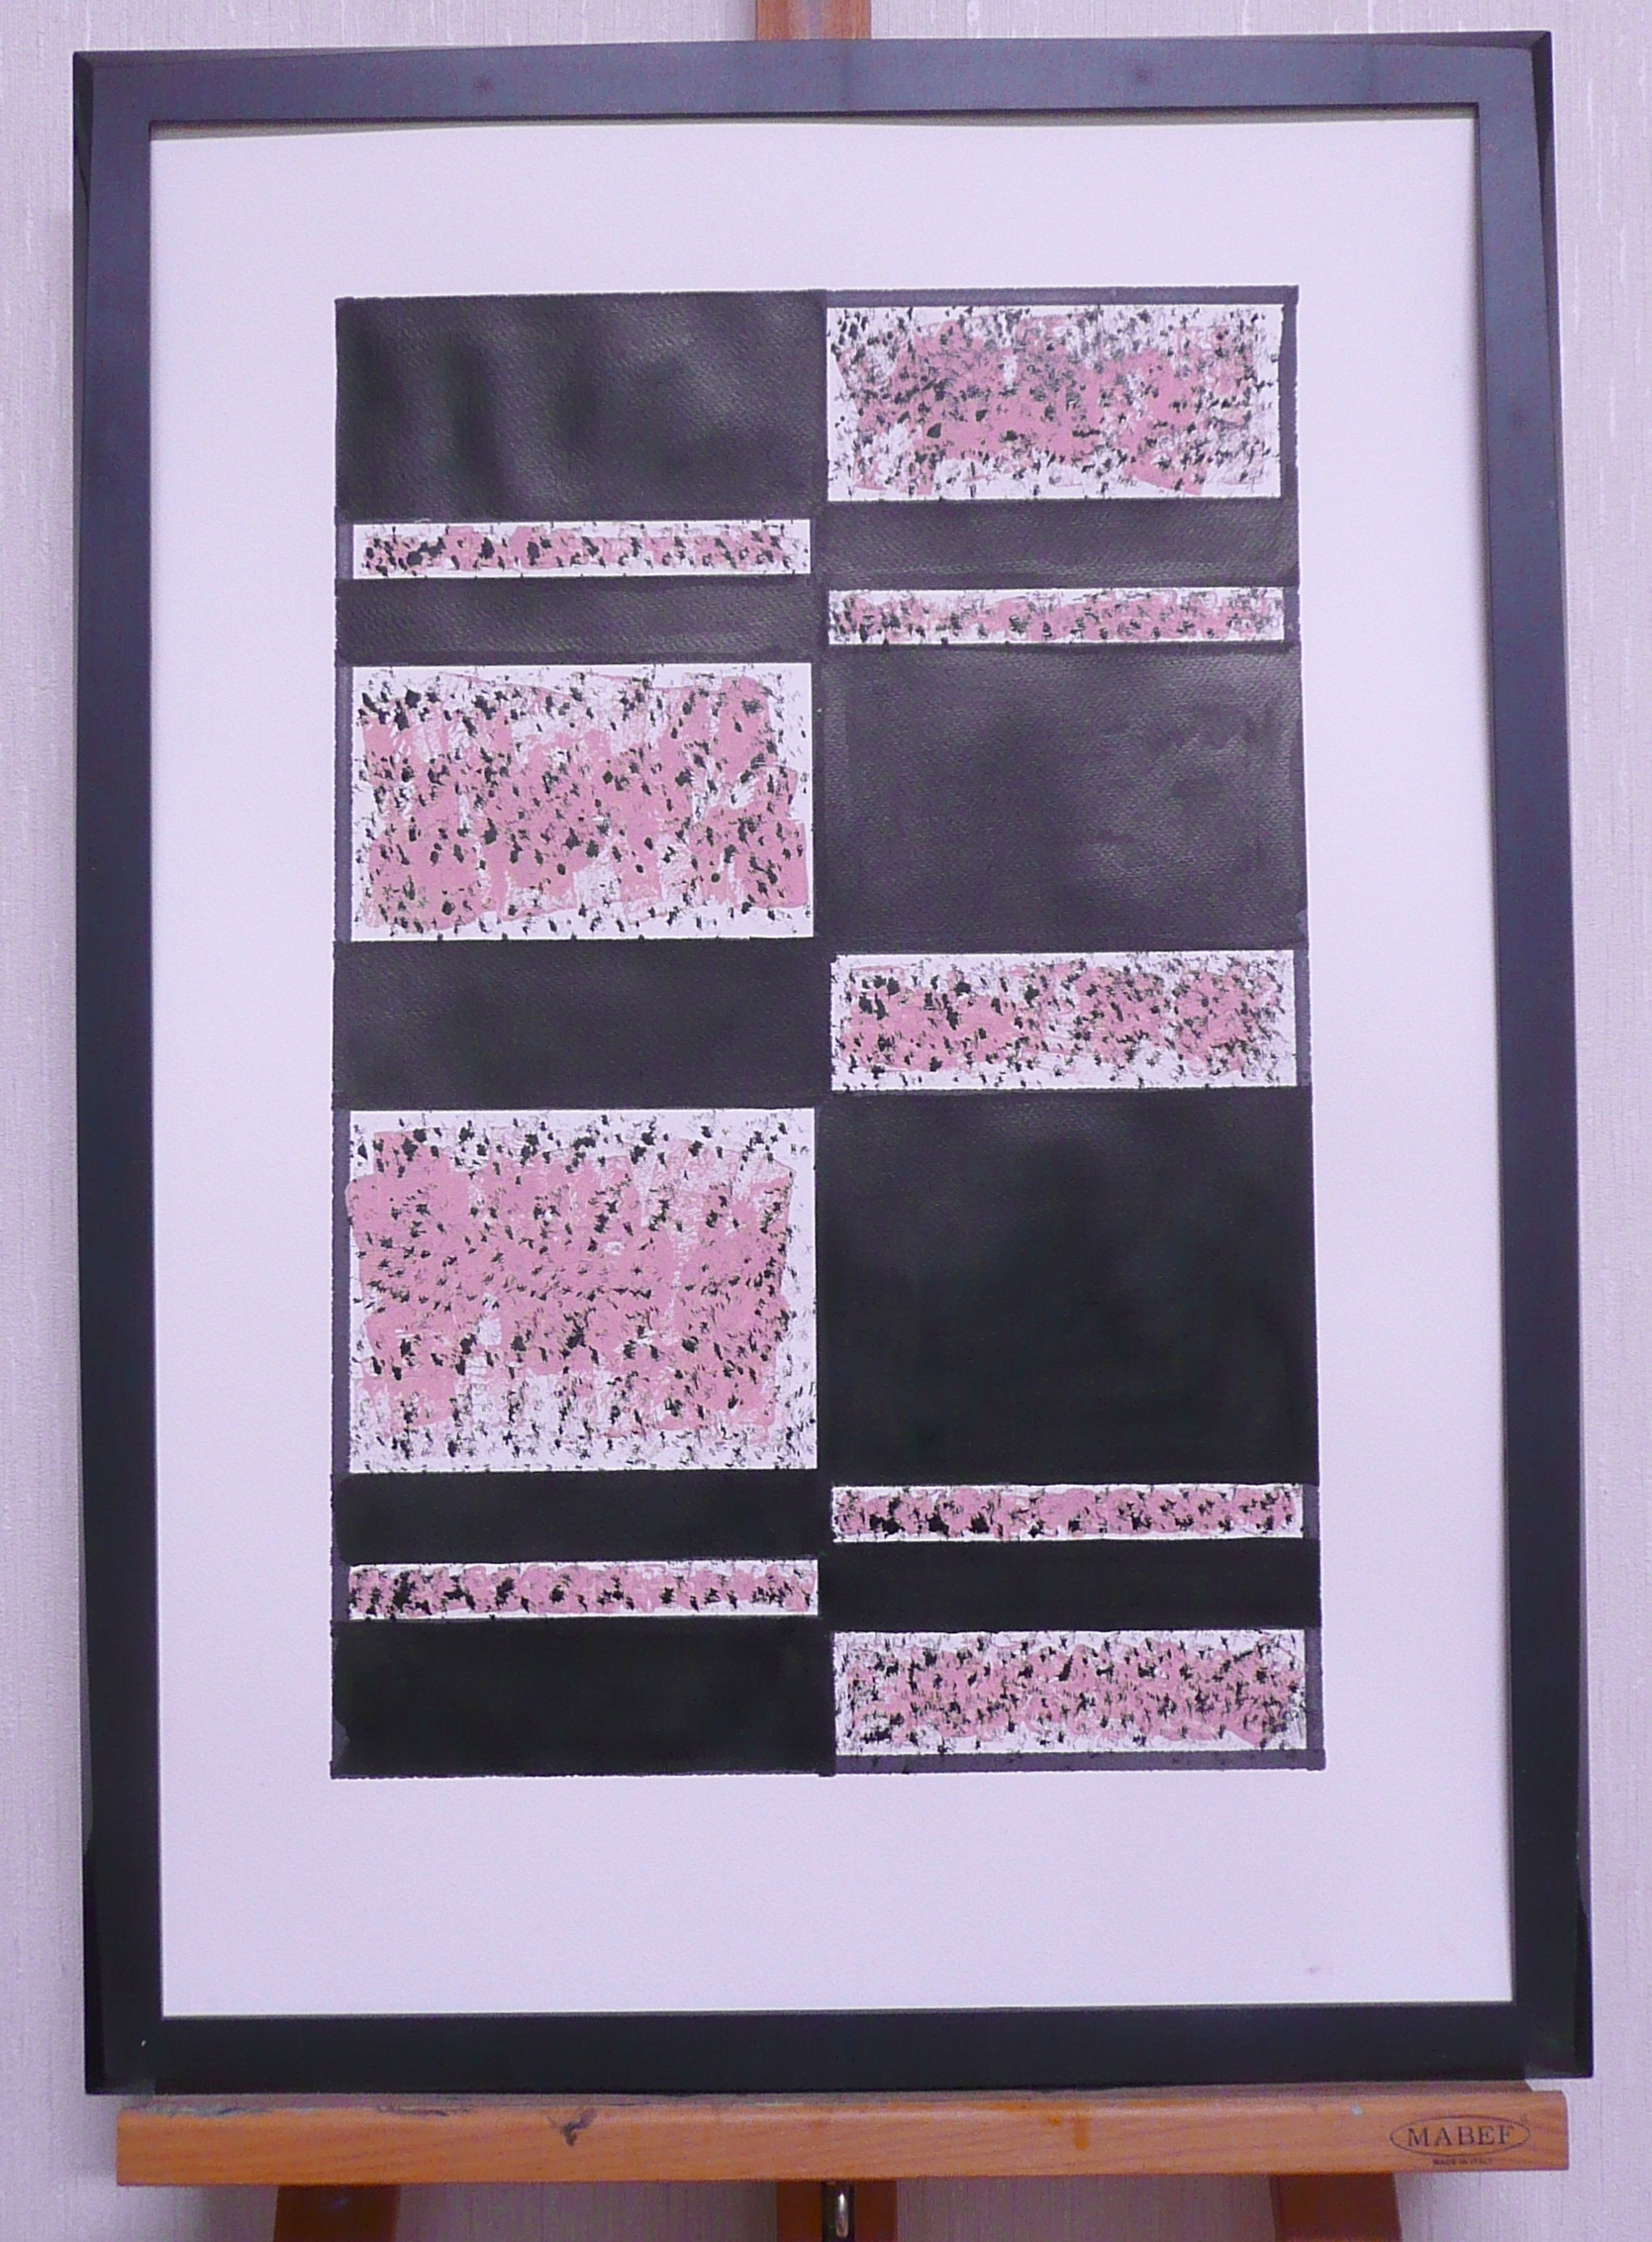 MABEF
MADE IN ITALY